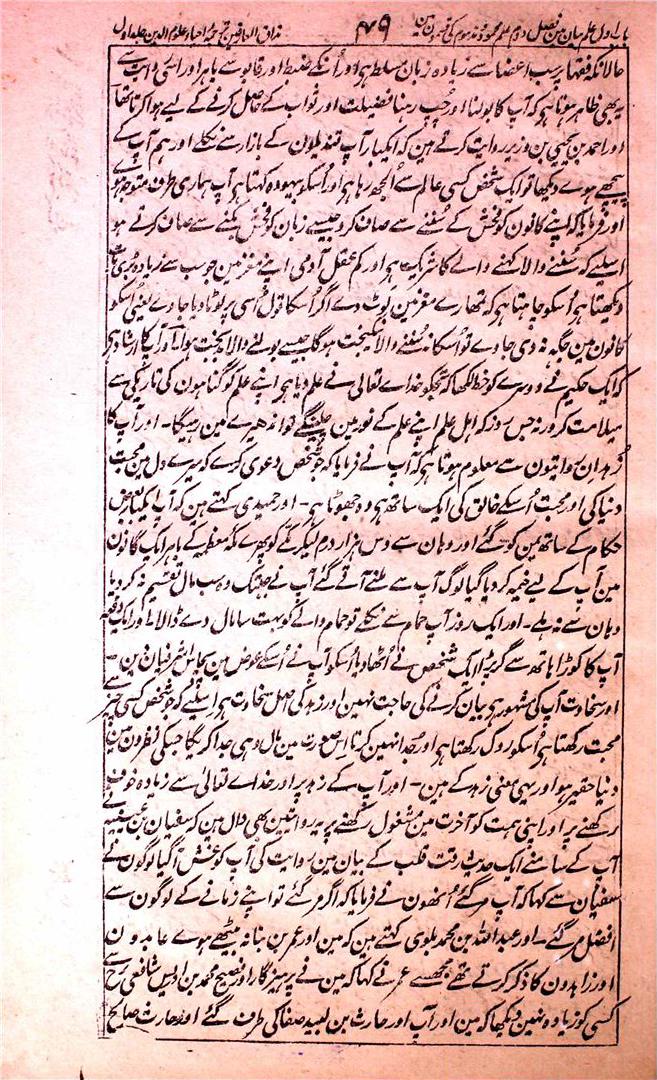 باب اول علم کے بیان مین فصل دوم علم محمود و مذموم کی قسمون مین ۴۹ مذاق العارفین ترجمہ احیاء علوم الدین جلد اول
حالانکہ فقہا پر سب اعضا سے زیادہ زبان مسلط ہے اور اُنکے ضبط اور قابو سے باہر اور اسی
یہ بھی ظاہر ہوتا ہے کہ آپ کا بولنا اور چپ رہنا فضیلت اور ثواب کے حاصل کرنے کے لیے ہوا کرتا تھا
اور احمد بن یحییٰ بن وزیر روایت کرتے ہین کہ ایکبار آپ قندیلون کے بازار سے نکلے اور ہم آپ کے
پیچھے ہوے دیکھا تو ایک شخص کسی عالم سے اُلجھ رہا ہے اور اُسکو بیہودہ کہتا ہے آپ ہماری طرف متوجہ ہوے
اور فرمایا کہ اپنے کانون کو فحش کے سُننے سے صاف کرو جیسے زبان کو فحش بکنے سے صاف کرتے ہو
اسلیے کہ سُننے والا کہنے والے کا شریک ہے اور کم عقل آدمی اپنے مغز مین جو سب سے زیادہ بُری بات
دیکھتا ہے اُسکو چاہتا ہے کہ تمھارے مغز مین لوٹ دے اگر اُسکا قول اُسی پر لوٹا دیا جاوے یعنی اُسکو
کانون مین جگہ نہ دی جاوے تو اُسکا نہ سُننے والا نیکبخت ہوگا جیسے بولنے والا بدبخت ہوا اور آپکا ارشاد ہے
کہ ایک حکیم نے دوسرے کو خط لکھا کہ تجکو خداے تعالی نے علم دیا ہے اپنے علم کو گناہون کی تاریکی سے
میلا مت کر ورنہ جس روز کہ اہل علم اپنے علم کے نور مین چلینگے تو اندھیرے مین رہیگا ۔ اور آپ کا
زہد ان روایتون سے معلوم ہوتا ہے کہ آپ نے فرمایا کہ جو شخص دعوی کرے کہ میرے دل مین محبت
دنیا کی اور محبت اُسکے خالق کی ایک ساتھ ہے وہ جھوٹا ہے ۔ اور حمیدی کہتے ہین کہ آپ ایکبار بعض
حکام کے ساتھ یمن کو گئے اور وہان سے دس ہزار درم لیکر مکے کو پھرے مکہ معظمہ کے باہر ایک گانون
مین آپ کے لیے خیمہ کر دیا گیا لوگ آپ سے ملنے آتے گئے آپ نے جب تک وہ سب مال تقسیم نہ کر دیا
وہان سے نہ ہلے ۔ اور ایک روز آپ حمام سے نکلے تو حمام والے کو بہت سا مال دے ڈالا اور ایک دفعہ
آپ کا کوڑا ہاتھ سے گر پڑا ایک شخص نے اُٹھا دیا اُسکو آپ نے اُسکے عوض مین پچاس اشرفیان دین ۔
اور سخاوت آپ کی مشہور ہے بیان کرنے کی حاجت نہین اور زہد کی اصل سخاوت ہے اسلیے کہ جو شخص کسی چیز سے
محبت رکھتا ہے اُسکو روک رکھتا ہے اور جُدا نہین کرتا اس صورت مین مال وہی جدا کریگا جسکی نظرون مین
دنیا حقیر ہو اور یہی معنی زہد کے ہین ۔ اور آپ کے زہد پر اور خداے تعالیٰ سے زیادہ خوف
رکھنے پر اور اپنی ہمت کو آخرت مین مشغول رکھنے پر یہ روایتین بھی دال ہین کہ سفیان بن عیینہ نے
آپ کے سامنے ایک حدیث رقت قلب کے بیان مین روایت کی آپ کو غش آگیا لوگون نے
سفیان سے کہا کہ آپ مر گئے اُنھون نے فرمایا کہ اگر مر گئے تو اپنے زمانے کے لوگون سے
افضل مر گئے ۔ اور عبداللہ بن محمد بلوی کہتے ہین کہ مین اور عمر بن بناتہ بیٹھے ہوے عابدون
اور زاہدون کا ذکر کرتے تھے مجھسے عمر نے کہا کہ مین نے پرہیزگار اور فصیح محمد بن ادریس شافعی رح سے
کسی کو زیادہ نہین دیکھا کہ مین اور آپ اور حارث بن لبید صفا کی طرف گئے اور حارث صالح